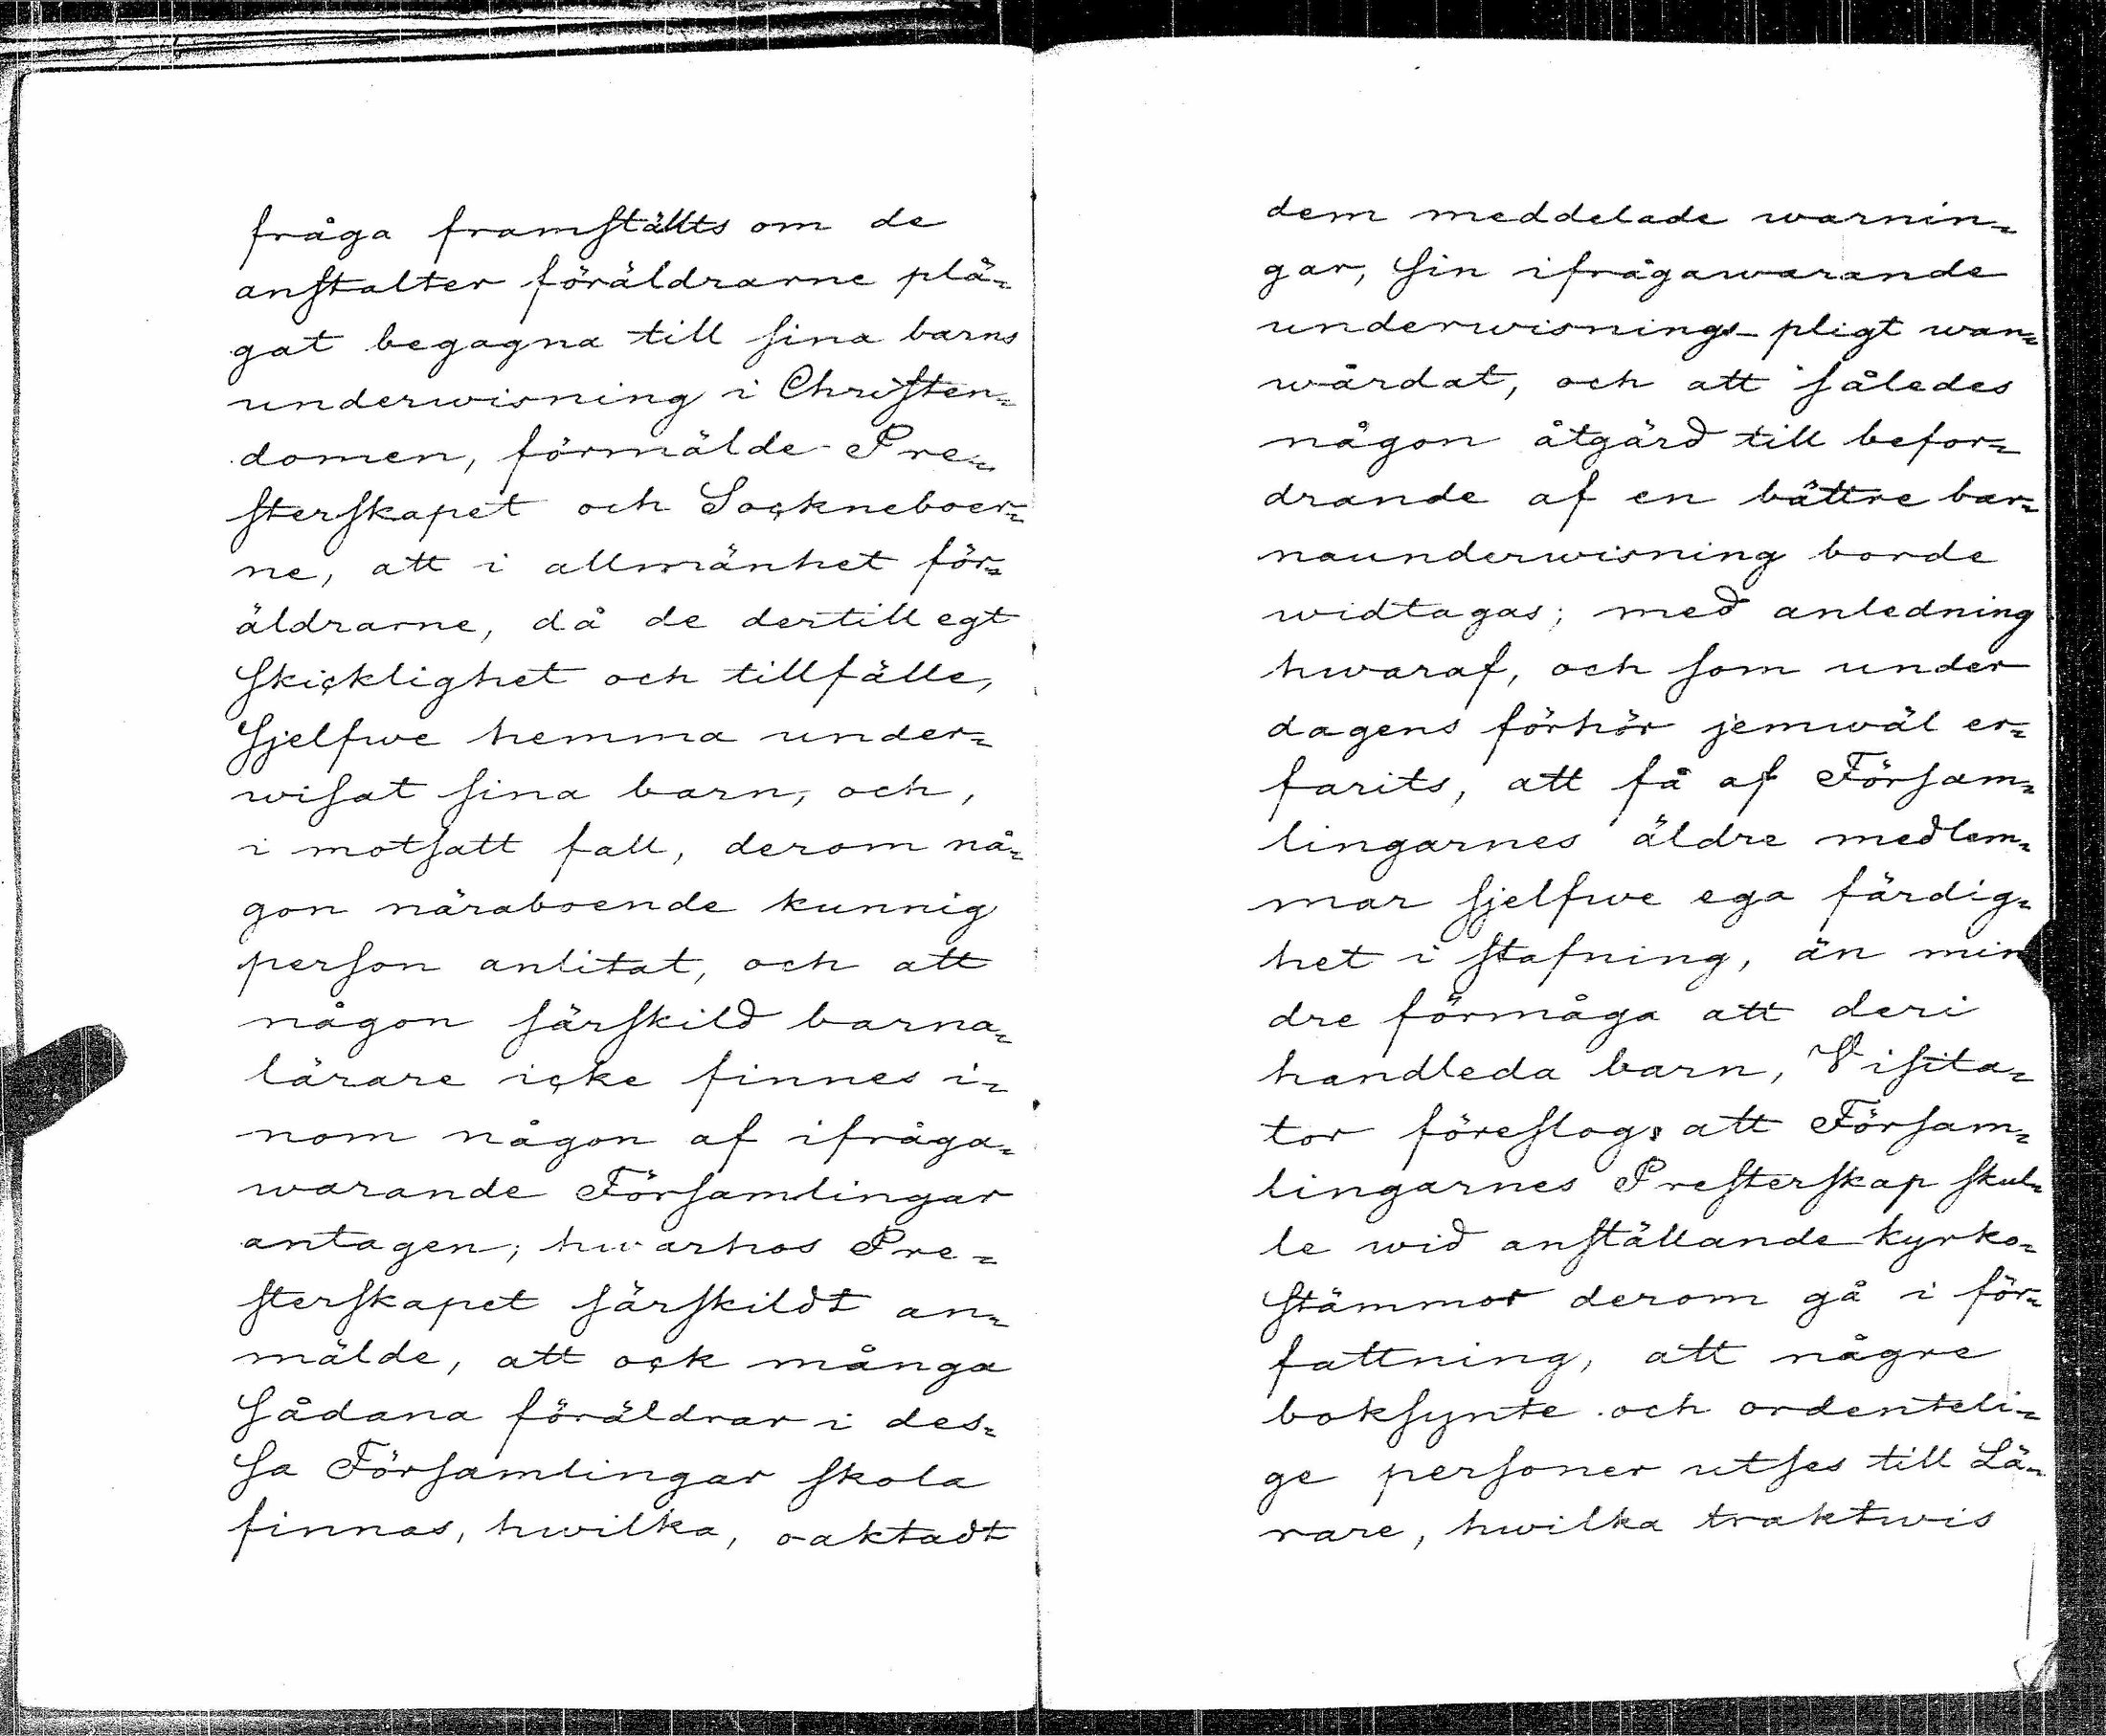 fråga framställts om de
anstalter föräldrarne plä=
gat begagna till sina barns
underwisning i Christen=
domen, förmälde Pre=
sterskapet och Sockneboer=
ne, att i allmänhet för=
äldrarne, då de dertill egt
skicklighet och tillfälle,
sjelfwe hemma under=
wisat sina barn, och,
i motsatt fall, derom nå=
gon näraboende kunnig
person anlitat, och att
någon särskild barna=
lärare icke finnes i=
nom någon af ifråga=
warande Församlingar
antagen; hwarhos Pre=
sterskapet särskildt an=
mälde, att ock många
sådana föräldrar i des=
sa Församlingar skola
finnas, hwilka, oaktadt
dem meddelade warnin=
gar, sin ifrågawarande
underwisnings-pligt wan=
wårdat, och att således
någon åtgärd till befor=
drande af en bättre bar=
naunderwisning borde
widtagas; med anledning
hwaraf, och som under
dagens förhör jemwäl er=
farits, att få af Försam=
lingarnes äldre medlem=
mar sjelfwe ega färdig=
het i stafning, än min
dre förmåga att deri
handleda barn, Visita=
tor föreslog: att Försam=
lingarnes Presterskap skul=
le wid anställande kyrko=
stämmor derom gå i för=
fattning, att någre
boksynte och ordenteli=
ge personer utses till Lä=
rare, hwilka traktwis